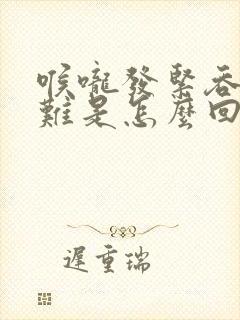 喉嚨發緊吞
難是怎麼回
遲重瑞